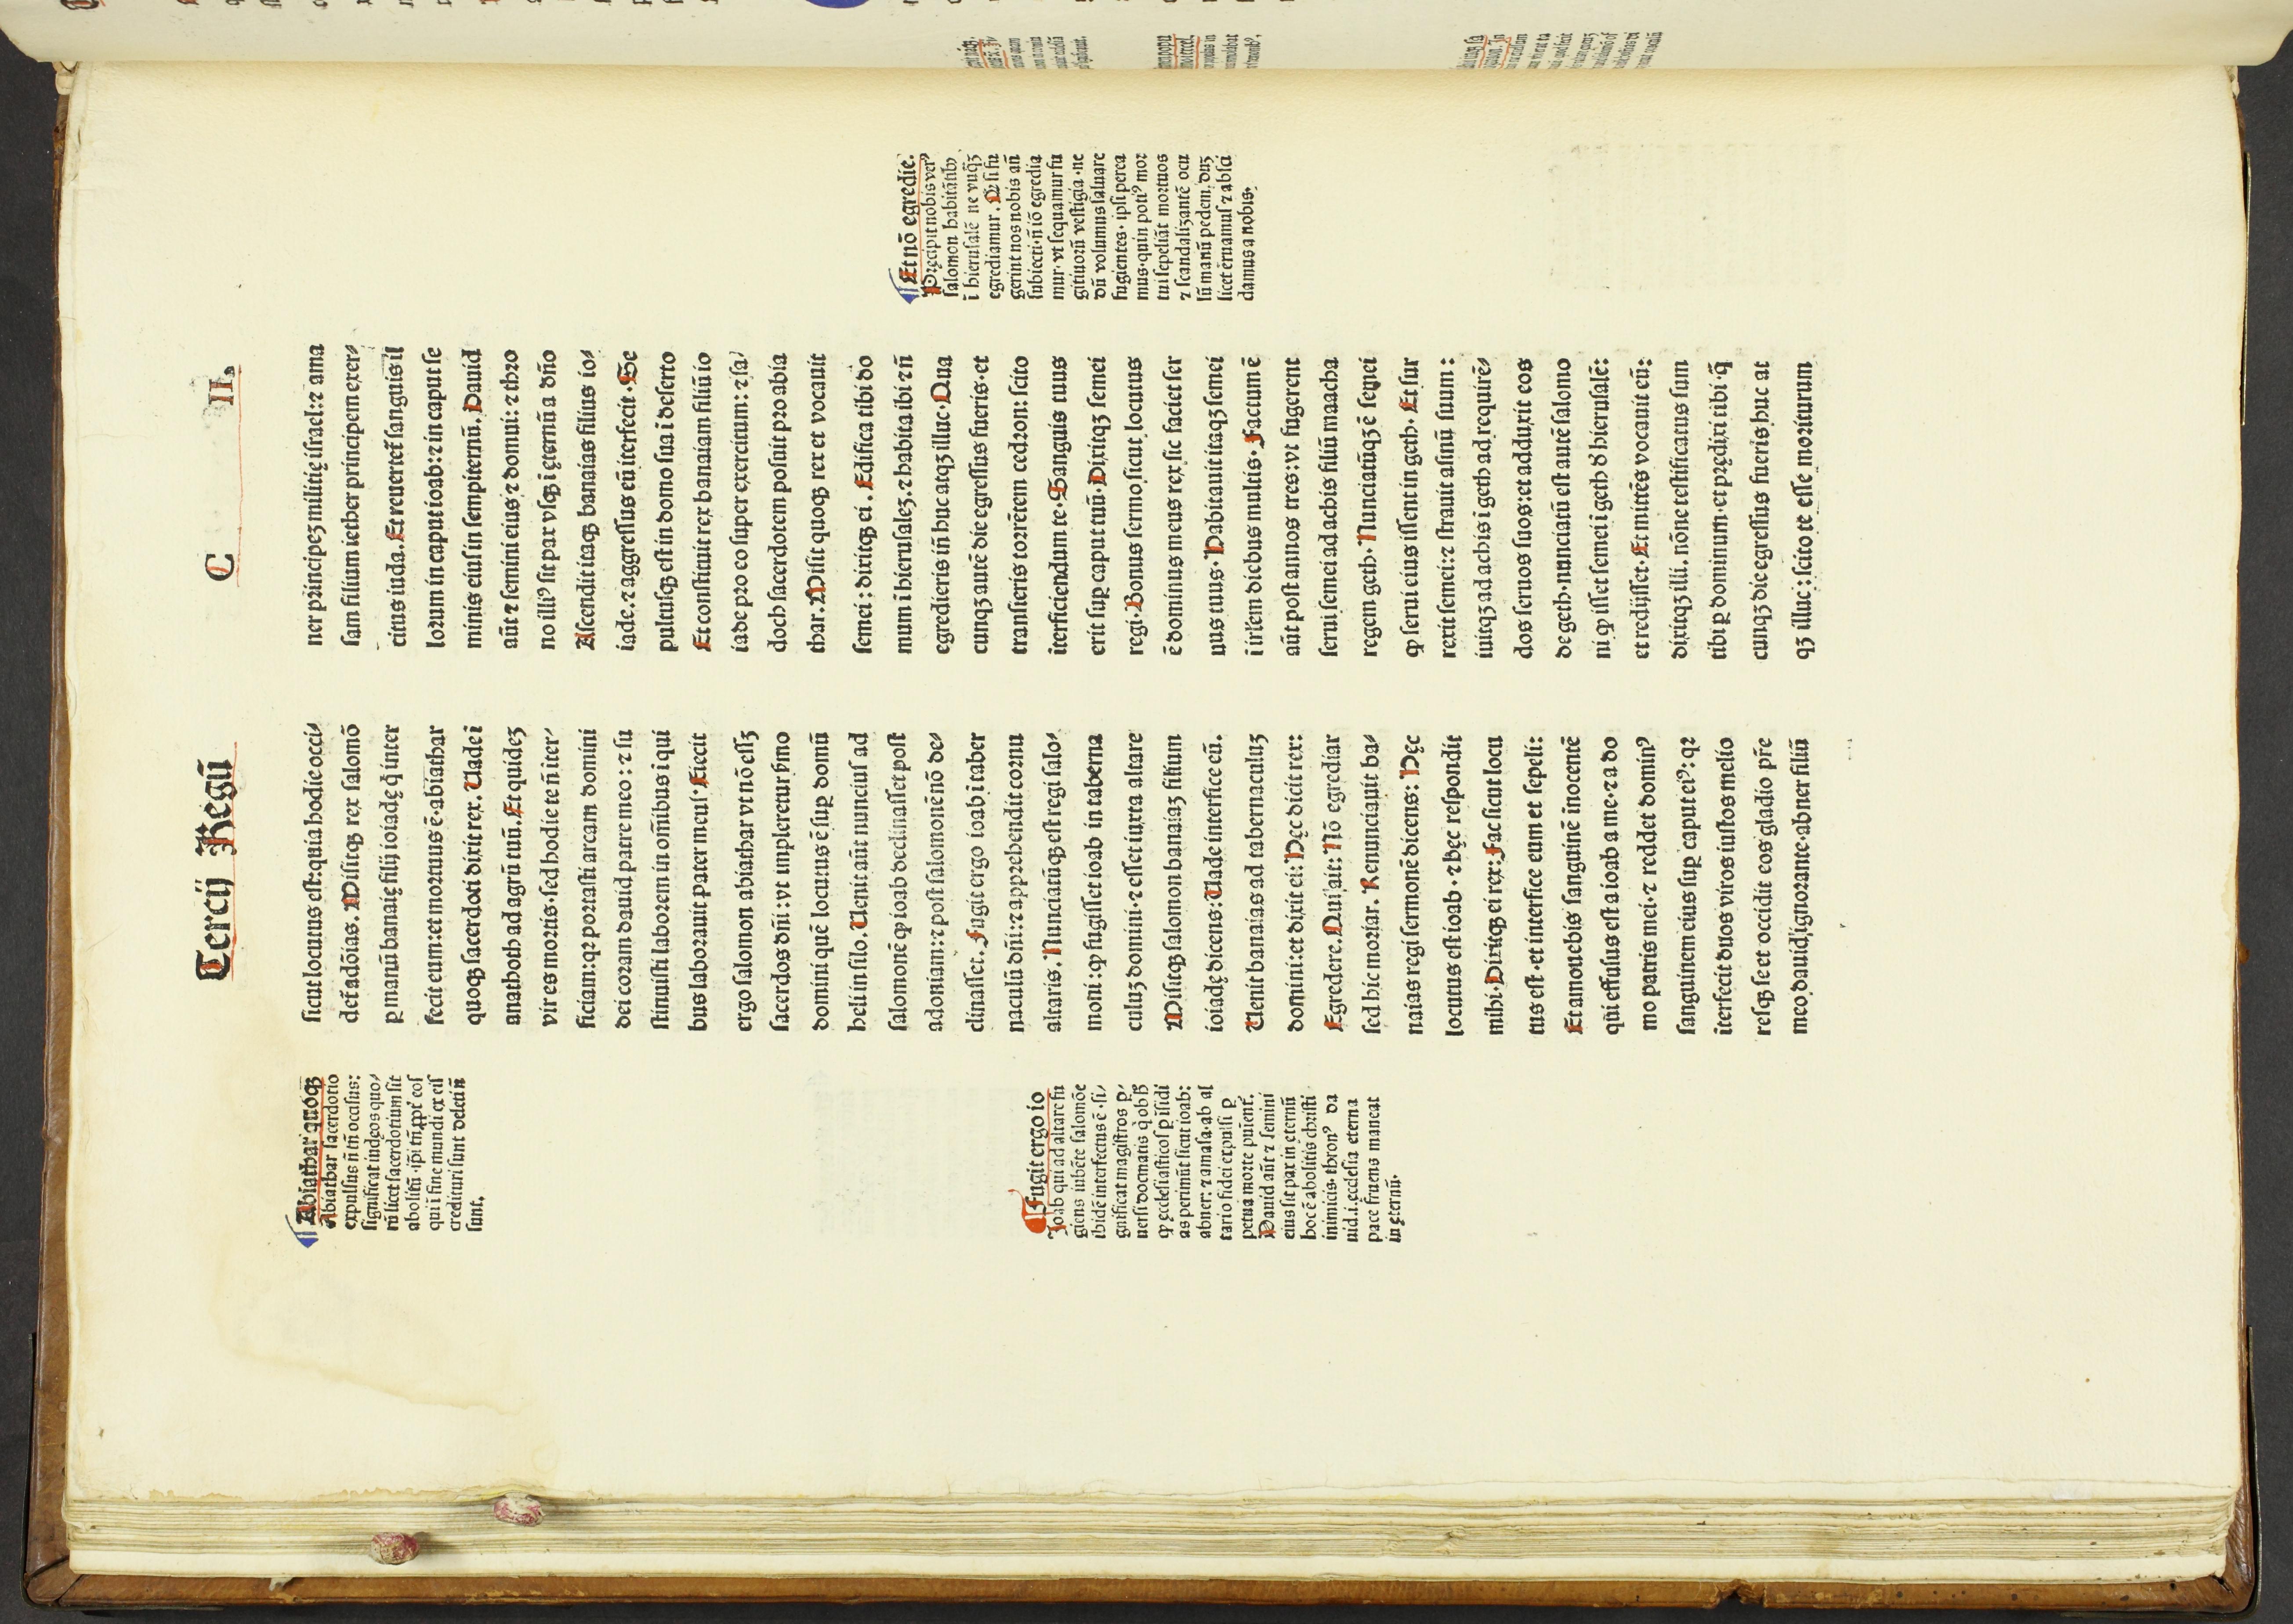 Tercij Regū
C II.
Abiathar quoqꝫ
Abiathar sacerdotio
expulsus ñ tñ occisus:
significat iudęos quo⸗
rū licet sacerdotium sit
abolitū · ip̄i tñ ꝓpt̄ eos
qui ī fine mundi ex eis
credituri sunt deleti ñ
sunt.
Fugit ergo io
Joab qui ad altare fu
giens iubēte salomōe
ibidē interfectus ē · si⸗
gnificat magistros ꝑ⸗
uersi docmatis q̇ ob hß
ꝙ ęcclesiasticos ꝑ isidi
as perimūt sicut ioab:
abner: ⁊ amasa · ab al
tario fidei expulsi ꝑ
petua morte puient̄.
Dauid aūt ⁊ semini
eius sit pax in eternū
hoc ē abolitis christi
inimicis · thron⁹ da
uid .i. ęcclesia eterna
pace fruens maneat
in ęternū.
sicut locutus est: quia hodie occi⸗
det̄ adōias. Misitqꝫ rex salomō
ꝑ manū banaię filij ioiadę q̇ inter
fecit eum: et mortuus ē · abiathar
quoqꝫ sacerdoti dixit rex. Uade i
anathoth ad agrū tuū. Et quidez
vir es mortis · sed hodie te ñ iter⸗
ficiam: qꝛ portasti arcam domini
dei coram dauid patre meo: ⁊ su
stinuisti laborem in om̄ibus i qui
bus laborauit pater meus. Eiecit
ergo salomon abiathar vt nō eſſꝫ
sacerdos dñi: vt impleretur ẜmo
domini quē locutus ē suꝑ domū
heli in silo. Uenit aūt nuncius ad
salomonē ꝙ ioab declinasset post
adoniam: ⁊ post salomonē nō de⸗
clinasset. Fugit ergo ioab i taber
naculū dñi: ⁊ apprehendit cornu
altaris. Nunciatūqꝫ est regi salo⸗
moni: ꝙ fugisset ioab in taberna
culuꝫ domini · ⁊ esset iuxta altare
Misitqꝫ salomon banaiaꝫ filium
ioiadę dicens: Uade interfice eū.
Uenit banaias ad tabernaculuꝫ
domini: et dixit ei: Hęc dicit rex:
Egredere. Qui ait: Nō egrediar
sed hic moriar. Renunciauit ba⸗
naias regi sermonē dicens: Hęc
locutus est ioab · ⁊ hęc respondit
mihi. Dixitqꝫ ei rex: Fac sicut locu
tus est · et interfice eum et sepeli:
Et amouebis sanguinē inocentē
qui effusus est a ioab a me · ⁊ a do
mo patris mei · ⁊ reddet domin⁹
sanguinem eius suꝑ caput ei⁹: qꝛ
iterfecit duos viros iustos melio
resqꝫ se et occidit eos gladio pr̄e
meo dauid ignorante · abner filiū
ner principeꝫ militię israel: ⁊ ama
sam filium iether principem exer⸗
citus iuda. Et reuertet̄ sanguis il
lorum in caput ioab: ⁊ in caput se
minis eius in sempiternū. Dauid
aūt ⁊ semini eius ⁊ domui: ⁊ thro
no illi⁹ sit pax vsqꝫ i ęternū a dño
Ascendit itaqꝫ banaias filius io⸗
iade · ⁊ aggressus eū iterfecit. Se
pultusqꝫ est in domo sua i deserto
Et constituit rex banaiam filiū io
iade pro eo super exercitum: ⁊ sa⸗
doch sacerdotem posuit pro abia
thar. Misit quoqꝫ rex et vocauit
semei: dixitqꝫ ei. Edifica tibi do
mum i hierusaleꝫ · ⁊ habita ibi ⁊ ñ
egredieris iñ huc atqꝫ illuc. Qua
cunqꝫ autē die egressus fueris · et
transieris torrētem cedron: scito
iterficiendum te. Sanguis tuus
erit suꝑ caput tuū. Dixitqꝫ semei
regi. Bonus sermo sicut locutus
ē dominus meus rex sic faciet ser
uus tuus. Habitauit itaqꝫ semei
i irl̄em diebus multis. Factum ē
aūt post annos tres: vt fugerent
serui semei ad achis filiū maacha
regem geth. Nunciatūqꝫ ē semei
ꝙ serui eius issent in geth. Et sur
rexit semei: ⁊ strauit asinū suum:
iuitqꝫ ad achis i geth ad requirē⸗
dos seruos suos: et adduxit eos
de geth · nunciatū est autē salomo
ni ꝙ isset semei i geth đ hierusalē:
et redijsset. Et mittēs vocauit eū:
dixitqꝫ illi. nōne testificatus sum
tibi ꝑ dominum · et prędixi tibi q̄
cunqꝫ die egressus fueris huc at
qꝫ illuc: scito te esse moriturum
Et nō egredie.
Pręcipit nobis ver⁹
salomon habitātibꝰ
i hierusalē ne vnq̄ꝫ
egrediamur. Q̄ si fu
gerint nos nobis añ
subiecti · ñ iō egredia
mur · vt sequamur fu
gitiuorū vestigia · ne
dū volumus saluare
fugientes · ipsi perea
mus · quin poti⁹ mor
tui sepeliāt mortuos
⁊ scandalizantē ocu
lū manū pedem, duꝫ
licet ēruamus ⁊ absci
damus a nobis.